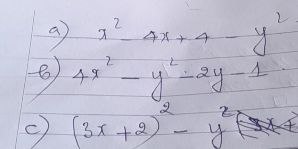 a) x² - 4x + 4 - y²
b) 4x² - y² - 2y - 1
c) (3x + 2)² - y²